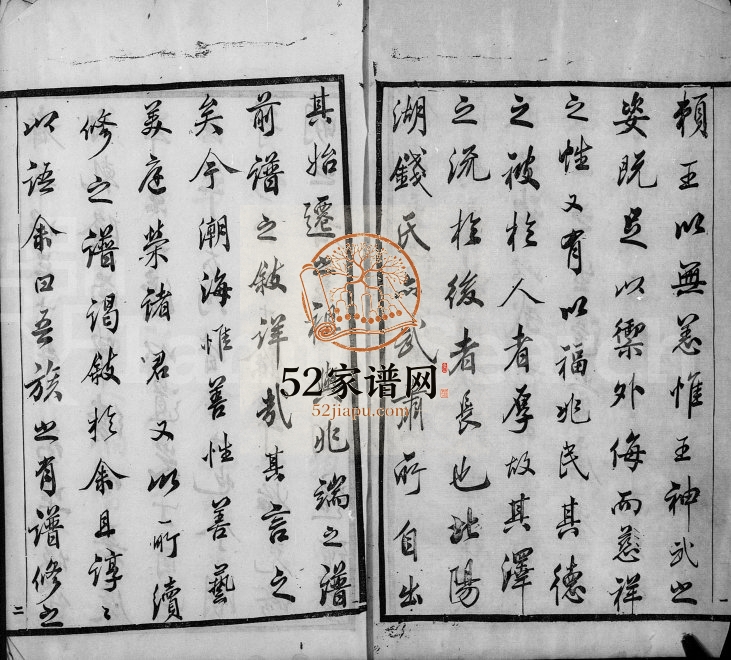 賴王以無恙惟王神武之
姿既足以禦外侮而慈祥
之性又有以福兆民其德
之被於人者厚故其澤
之流於後者長也此陽
湖錢氏武肅所自出
其始遷兆端之譜
前譜之敍詳哉其言之
矣今潮海惟善性善藝
美庭榮諸君又以所續
修之譜謁敍於余且諄〻
以語余曰吾族之有譜修之
一
二
52家谱网
52jiapu.com